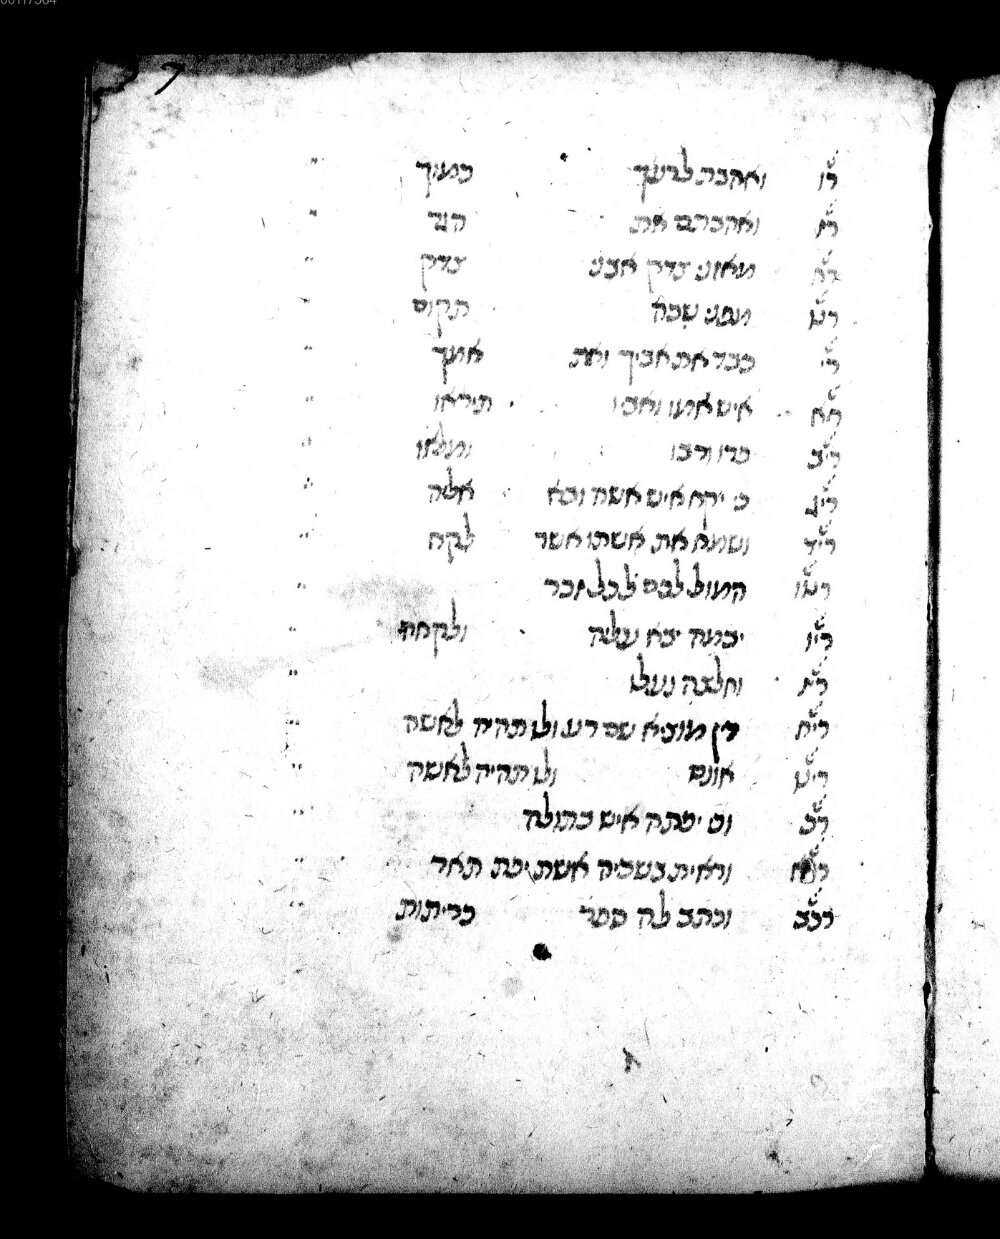 רו ואהבת לרעך כמוך
רז ואהבתם את הגר
רח מאזני צדק אבני צדק
רט מפני שבה תקום
רי כבד את אביך ואת אמך
ריא איש אמו ואביו תיראו
ריב פרו ורבו ומלאו
ריג כי יקח איש אשה ובא אליה
ריד ושמח את אשתו אשר לקח
רטו המול לכם כל זכר
ריו יבמה יבא עליה ולקחה
ריז וחלצה נעלו
ריח דין מוציא שם רע ולו תהיה לאשה
ריט אונס ולו תהיה לאשה
רכ וכי יפתה איש בתולה
רכא וראית בשביה אשת יפת תאר
רכב וכתב לה ספר כריתות